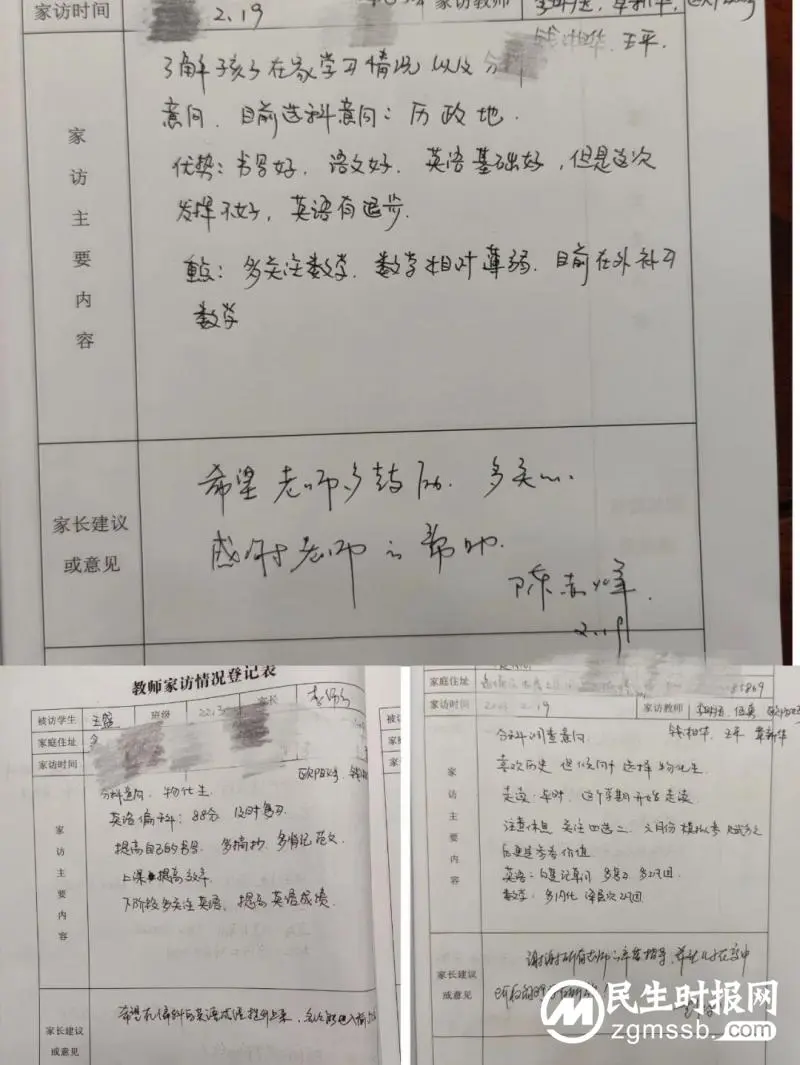 家访时间
2.19
家访教师
钱湘华、王平.
家访主要内容
了解孩子在家学习情况以及分科
意向. 目前选科意向：历政地.
优势：书写好. 语文好. 英语基础好, 但是这次
发挥不好, 英语有退步.
重点：多关注数学. 数学相对薄弱. 目前在外补习
数学
家长建议或意见
希望老师多鼓励. 多关心.
感谢老师的帮助.
2.19
教师家访情况登记表
被访学生
王盛
班级
家长
家庭住址
家访时间
家访主要内容
分科意向：物化生.
英语偏科：88分 及时复习
提高自己的书写. 多摘抄. 多背记范文.
上课提高效率.
下阶段多关注英语, 提高英语成绩.
家长建议或意见
希望把偏科的英语成绩提升上来,
家庭住址
家访时间
2.19
家访教师
钱湘华、王平 章新华
家访主要内容
分科调查意向.
喜欢历史 但倾向于选择物化生.
走读：准时. 这个学期开始走读.
注意休息 关注四选二.
英语：自己记单词 多复习 多巩固.
数学：
家长建议或意见
谢谢所有老师的辛苦指导,
民生时报网
zgmssb.com